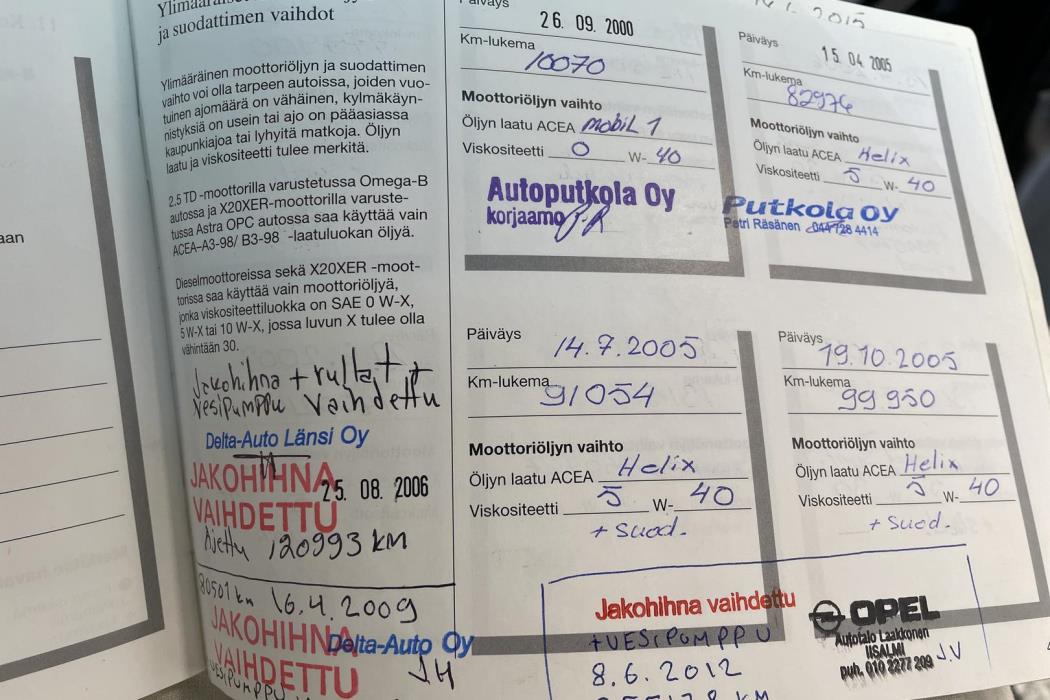 ja suodattimen vaihdot
Ylimääräinen moottoriöljyn ja suodattimen
vaihto voi olla tarpeen autoissa, joiden vuo-
tuinen ajomäärä on vähäinen, kylmäkäyn-
nistyksiä on usein tai ajo on pääasiassa
kaupunkiajoa tai lyhyitä matkoja. Öljyn
laatu ja viskositeetti tulee merkitä.
2.5 TD -moottorilla varustetussa Omega-B
autossa ja X20XER-moottorilla varuste-
tussa Astra OPC autossa saa käyttää vain
ACEA-A3-98/ B3-98 -laatuluokan öljyä.
Dieselmoottoreissa sekä X20XER -moot-
torissa saa käyttää vain moottoriöljyä,
jonka viskositeettiluokka on SAE 0 W-X,
5 W-X tai 10 W-X, jossa luvun X tulee olla
vähintään 30.
Jakohihna + rullat +
vesipumppu vaihdettu
Delta-Auto Länsi Oy
JAKOHIHNA
25. 08. 2006
VAIHDETTU
Ajettu 120993 KM
80501 km 16.4.2009
JAKOHIHNA
Delta-Auto Oy
VAIHDETTU
J.H
vesipumppu
Päiväys
26. 09. 2000
Km-lukema
10070
Moottoriöljyn vaihto
Öljyn laatu ACEA mobiL 1
Viskositeetti 0 W- 40
Autoputkola Oy
korjaamo
2015
Päiväys
15. 04. 2005
Km-lukema
82976
Moottoriöljyn vaihto
Öljyn laatu ACEA Helix
Viskositeetti 5 W- 40
Putkola oy
Petri Räsänen 044 728 4414
Päiväys 14.7.2005
Km-lukema
91054
Moottoriöljyn vaihto
Öljyn laatu ACEA Helix
Viskositeetti 5 W- 40
+ suod.
Päiväys
19.10.2005
Km-lukema
99950
Moottoriöljyn vaihto
Öljyn laatu ACEA Helix
Viskositeetti 5 W- 40
+ suod.
Jakohihna vaihdettu
+VESIPUMPPU
8.6.2012
KM
OPEL
Autotalo Laakkonen
IISALMI
puh. 010 2277 209 J.V
aan